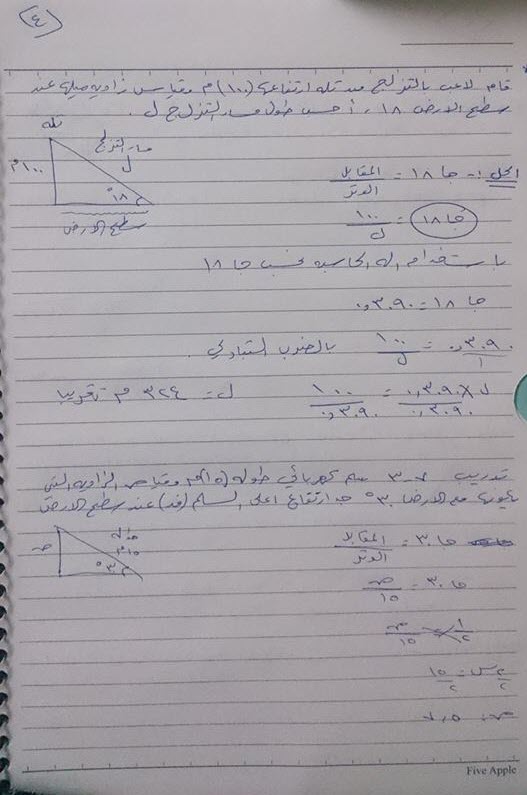 (٤)
قام لاعب بالتزلج من تله ارتفاعها (١٠٠) م وقياس زاوية ميلها عند
سطح الارض ١٨ ، أحسب طول مسار التزلج ل .
تله
مسار التزلج
ل
١٠٠ م
١٨°
سطح الارض
الحل :- جا ١٨ = المقابل / الوتر
جا ١٨ = ١٠٠ / ل
باستخدام اله الحاسبه نحسب جا ١٨
جا ١٨ = ٠,٣٠٩٠
٠,٣٠٩٠ / ١ = ١٠٠ / ل بالضرب التبادلي
ل × ٠,٣٠٩٠ / ٠,٣٠٩٠ = ١٠٠ / ٠,٣٠٩٠ ل = ٣٢٤ م تقريبا
تدريب ٧-٣ سلم كهربائي طوله (١٥) م وقياس الزاويه التي
يكونها مع الارض ٣٠° جد ارتفاع اعلى السلم عند سطح الارض
طوله
١٥ م
٣٠°
ص
جا ٣٠ = المقابل / الوتر
جا ٣٠ = ص / ١٥
١ / ٢ = ص / ١٥
١٥ / ٢
٧,٥
Five Apple